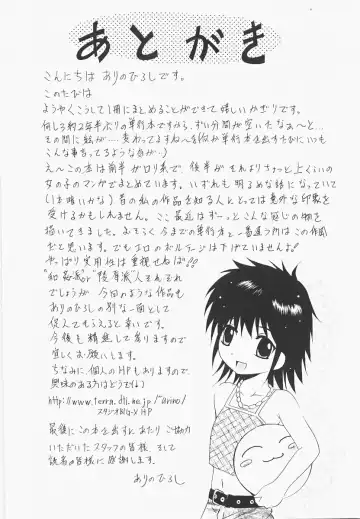 あとがき
こんにちは ありのひろしです。
このたびは
ようやくこうして1冊にまとめることができて嬉しいかぎりです。
何しろ約2年半ぶりの単行本ですから、ずい分間が空いたなぁ〜と…
その間に絵が… 変わってますね〜
え〜この本は前半がロリ系で、後半がそれよりちょっと上くらいの
女の子のマンガでまとめています。いずれも明るめな話になっていて
昔の私の作品を知る人にとっては意外な印象を
受けるかもしれません。ここ最近はずーっとこんな感じの物を
描いてきました。おそらく今までの単行本と一番違う所はこの作風
だと思います。でもエロのボルテージは下げていませんよ!
やっぱり実用性は重視せねば!!
"和姦派"or"陵辱派"人それぞれ
でしょうが 今回のような作品も
ありのひろしの別な一面として
捉えてもらえると幸いです。
今後も精進して参りますので
宜しくお願いします。
ちなみに、個人のHPもありますので
興味のある方はどうぞ
最後にこの本を出すにあたり ご協力
いただいたスタッフの皆様、そして
読者の皆様に感謝します。
ありのひろし